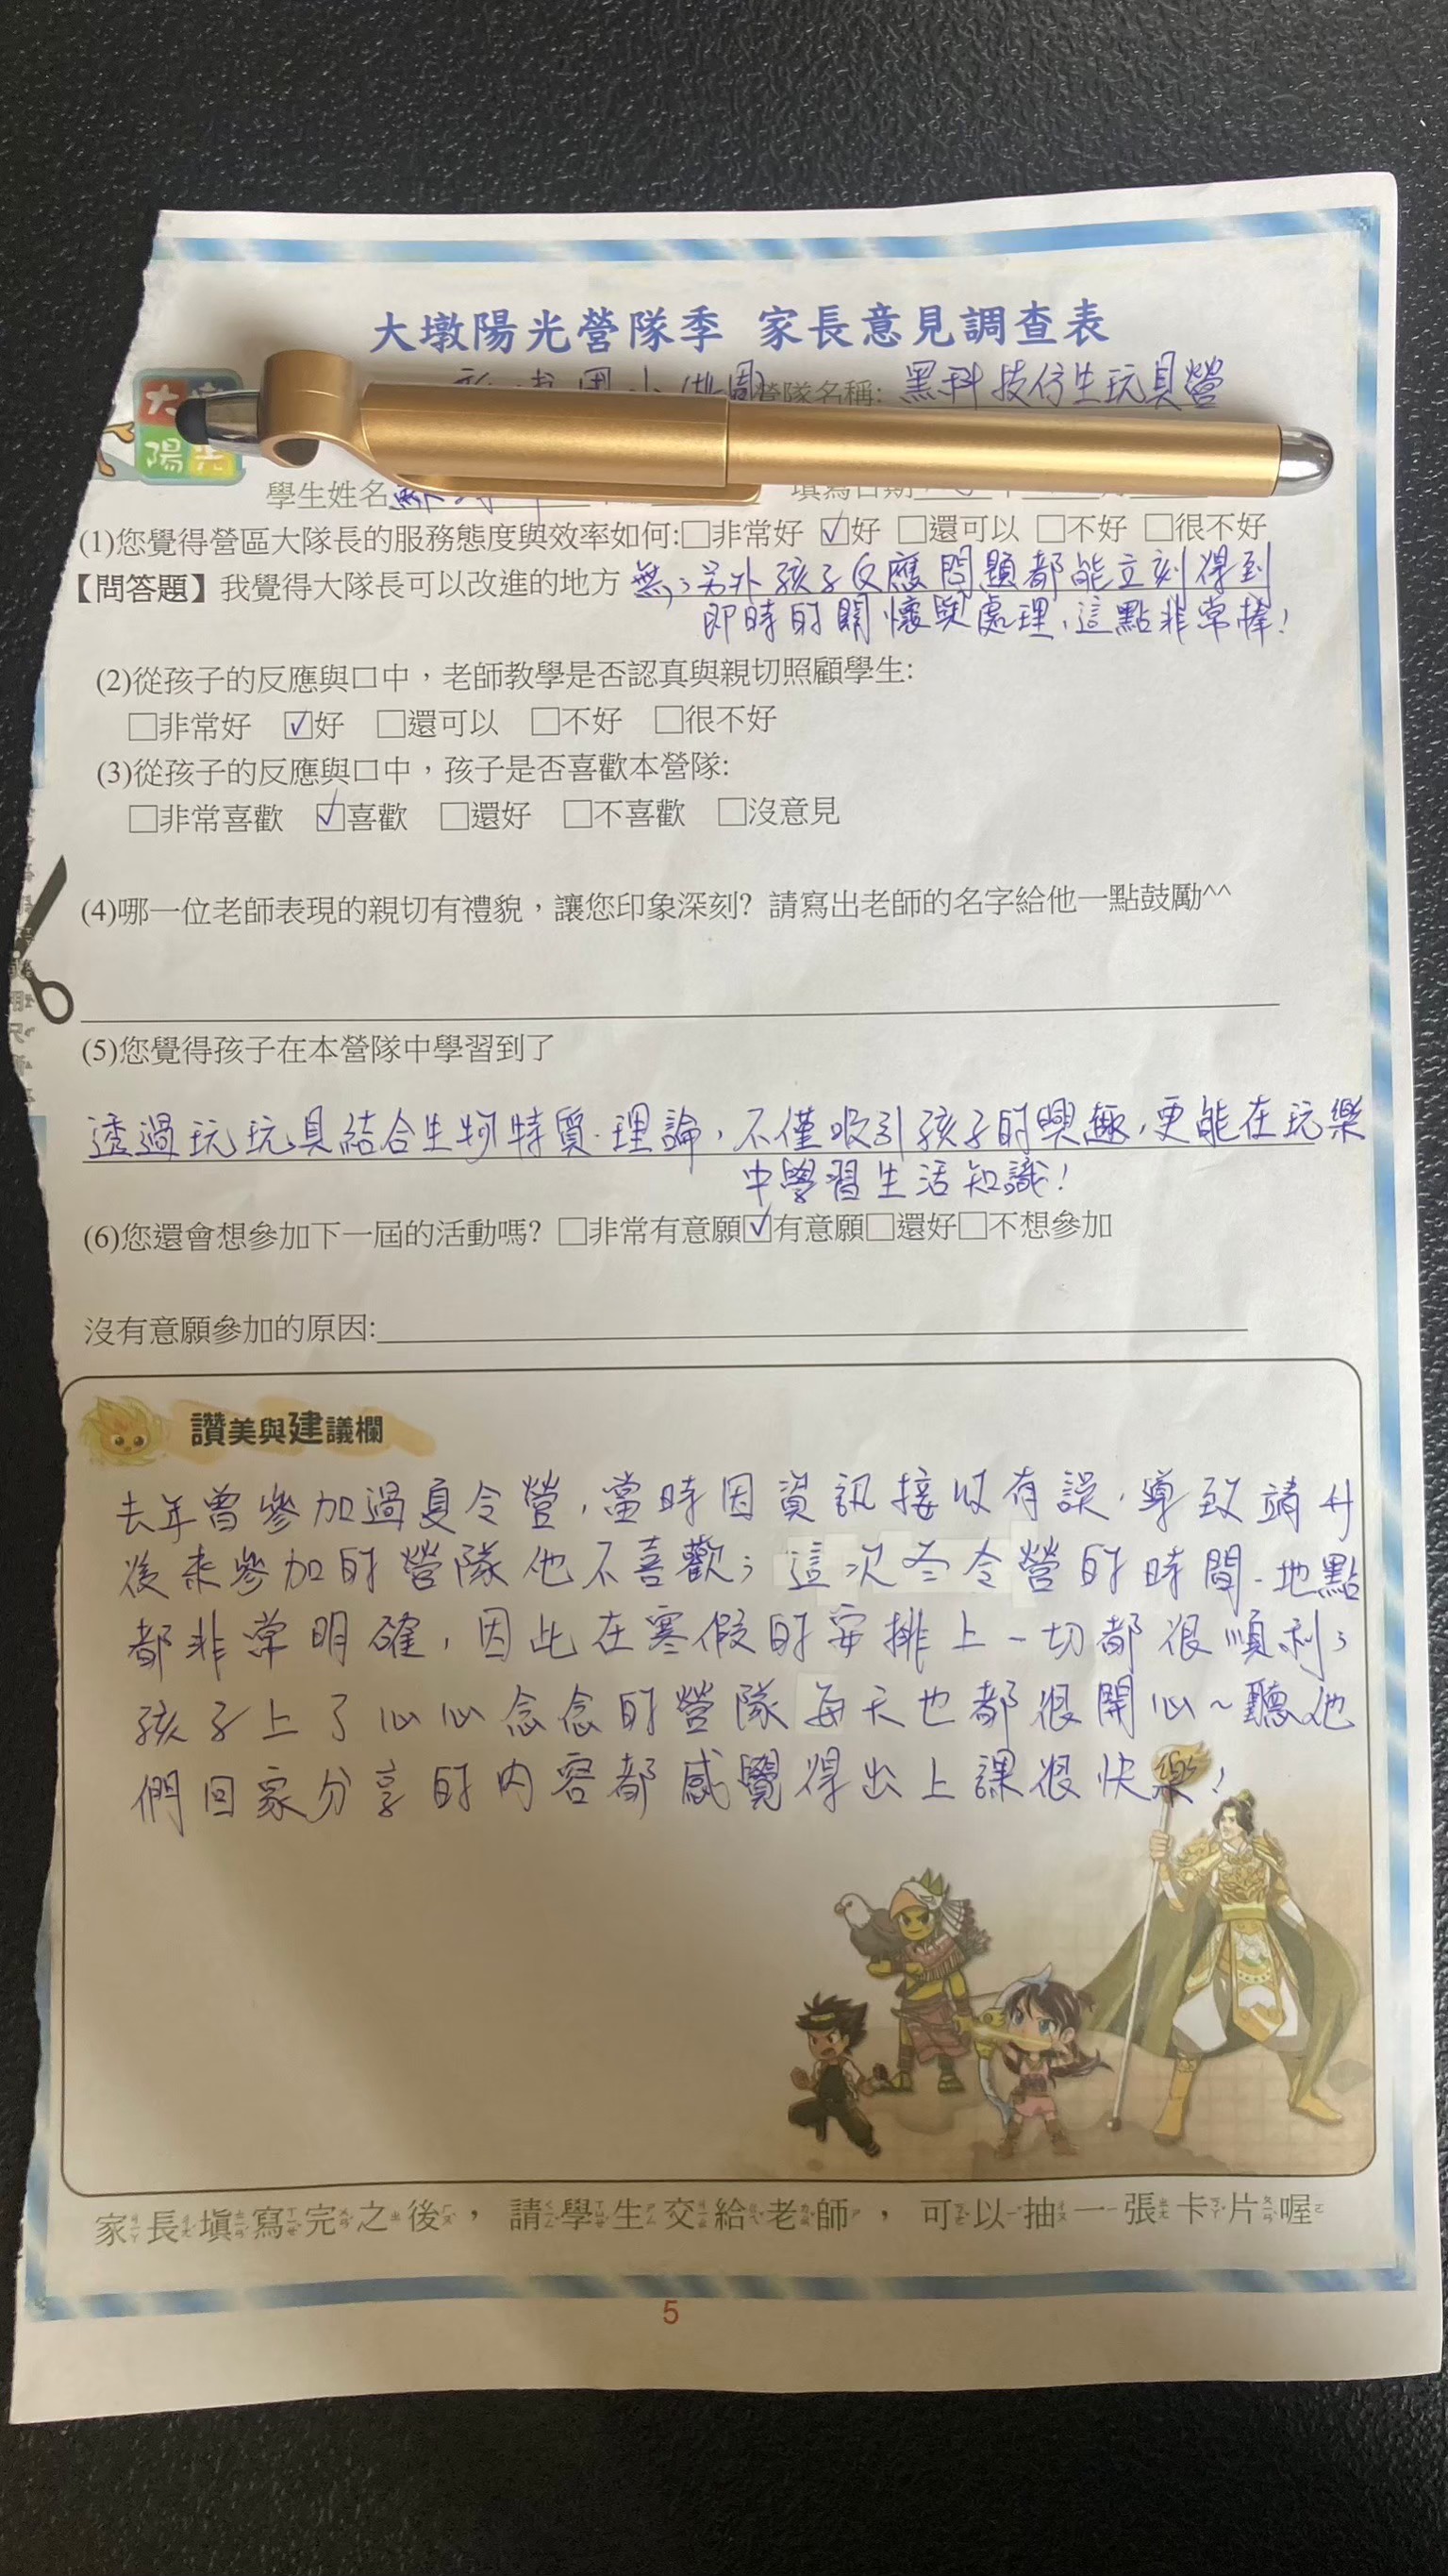 大墩陽光營隊季 家長意見調查表
營隊名稱: 黑科技仿生玩具營
大
陽光
學生姓名
填寫日期
(1)您覺得營區大隊長的服務態度與效率如何:□非常好 ☑好 □還可以 □不好 □很不好
【問答題】我覺得大隊長可以改進的地方 無;另外孩子反應問題都能立刻得到
即時的關懷與處理,這點非常棒!
(2)從孩子的反應與口中,老師教學是否認真與親切照顧學生:
□非常好 ☑好 □還可以 □不好 □很不好
(3)從孩子的反應與口中,孩子是否喜歡本營隊:
□非常喜歡 ☑喜歡 □還好 □不喜歡 □沒意見
(4)哪一位老師表現的親切有禮貌,讓您印象深刻? 請寫出老師的名字給他一點鼓勵^^
(5)您覺得孩子在本營隊中學習到了
透過玩玩具結合生物特質.理論,不僅吸引孩子的興趣,更能在玩樂
中學習生活知識!
(6)您還會想參加下一屆的活動嗎? □非常有意願☑有意願□還好□不想參加
沒有意願參加的原因:
讚美與建議欄
去年曾參加過夏令營,當時因資訊接收有誤,導致靖
後來參加的營隊他不喜歡;這次冬令營的時間.地點
都非常明確,因此在寒假的安排上一切都很順利;
孩子上了心心念念的營隊每天也都很開心~聽他
們回家分享的內容都感覺得出上課很快樂!
家長填寫完之後,請學生交給老師,可以抽一張卡片喔
5